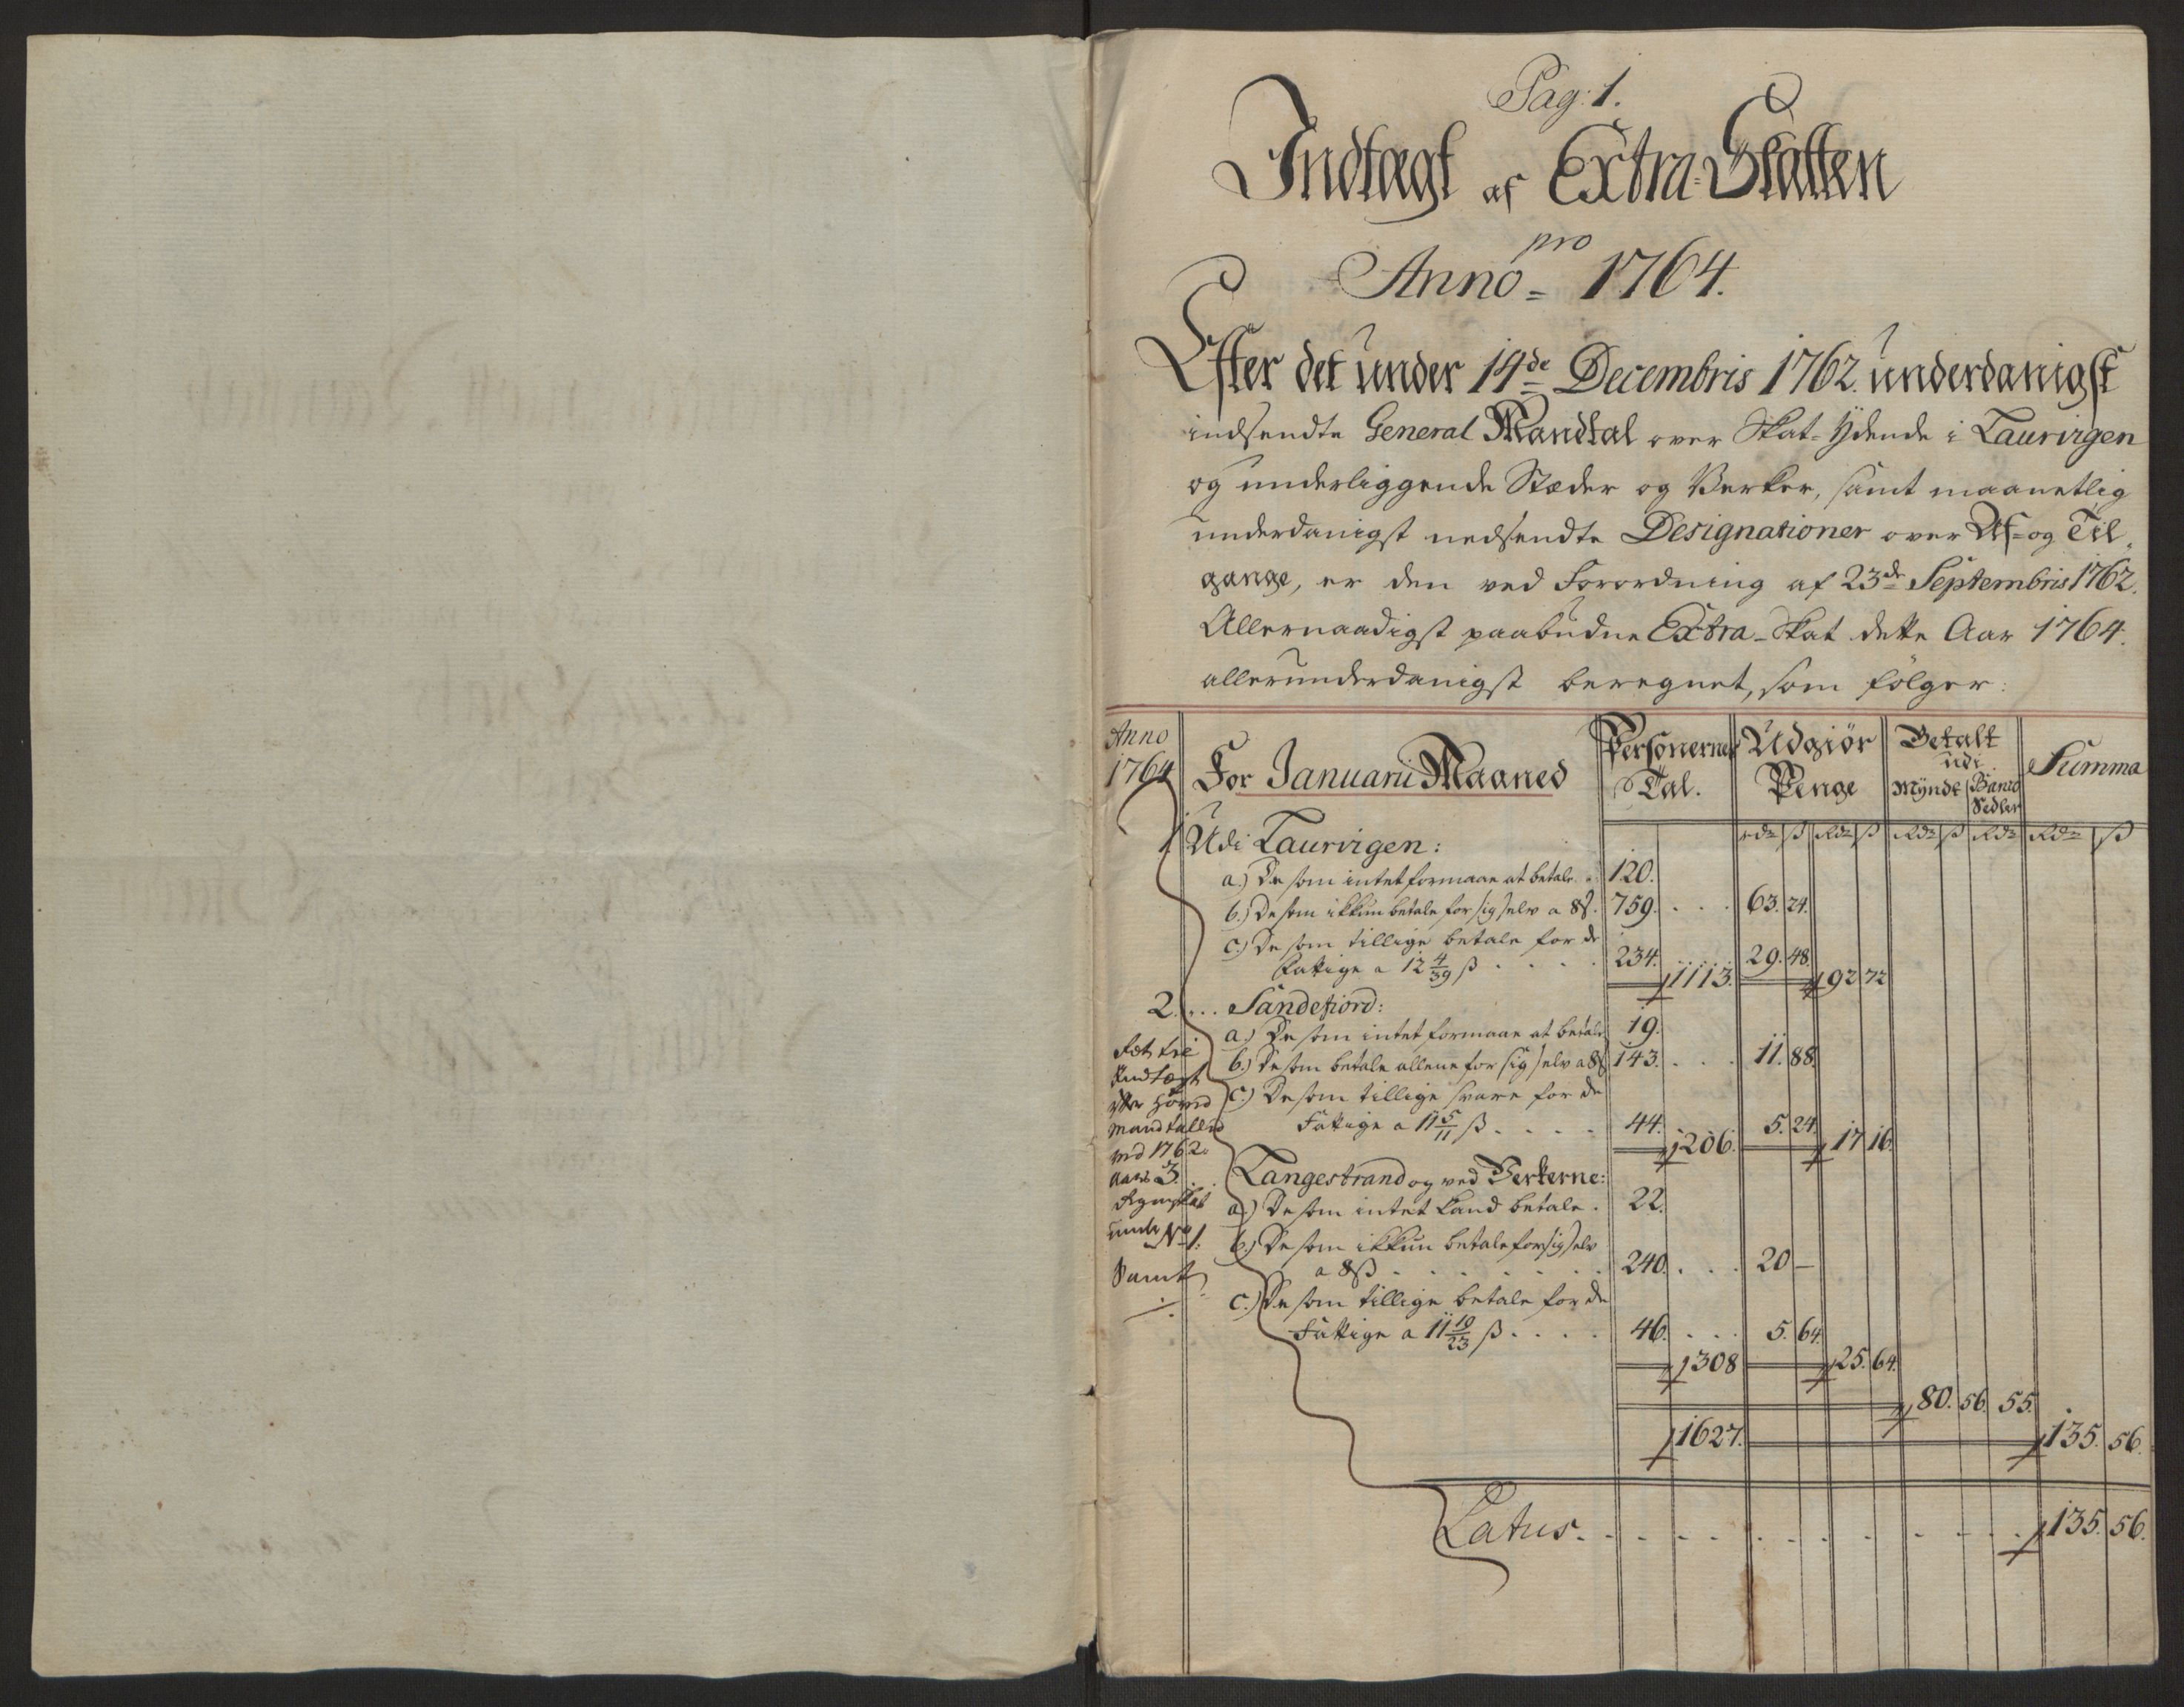 Pag: 1.
Indtægt af Extra-Skatten
pro
Anno = 1764.
Efter det under 14de Decembris 1762. underdanigst
indsendte General Mandtal over Skat-Ydende i Laurvigen
og underliggende Stæder og Verker, samt maanetlig
underdanigst nedsendte Designationer over Af- og Til-
gange, er den ved Forordning af 23de Septembris 1762.
Allernaadigst paabudne Extra-Skat dette Aar 1764.
allerunderdanigst beregnet, som følger:
Anno 1764 For Januarii Maaned Personernes Tal. Udgiør Penge Betalt udi Mÿndt Banco Sedler Summa
rdr ß Rdr ß Rdr ß Rdr Rdr ß
1. Udi Laurvigen:
a.) De som intet formaae at betale. 120.
b.) De som ikkun betale for sig selv a 8ß. 759. . . . 63. 24.
c.) De som tillige betale for de
fattige a 12 4/39 ß . . . . 234. . . . 29. 48.
1113. 92 72
2. . . . Sandefiord:
a.) De som intet formaae at betale 19.
b.) De som betale allene for sig selv a 8ß 143. . . . 11. 88.
c.) De som tillige svare for de
Fattige a 11 5/11 ß . . . . 44. 5. 24.
206. 17 16.
3. . . Langestrand og ved Verkerne:
a.) De som intet kand betale. 22.
b.) De som ikkun betale for sig selv
a 8ß . . . . . . 240. . . . 20 –
c.) De som tillige betale for de
Fattige a 11 10/23 ß . . . . 46. . . . 5. 64.
308 25. 64.
80. 56. 55.
1627. 135. 56.
Latus. . . . . . . . . 135. 56.
Indtægt
efter Hoved
mandtallet
ved 1762.
Aars
Regnskab
under No 1.
Samt